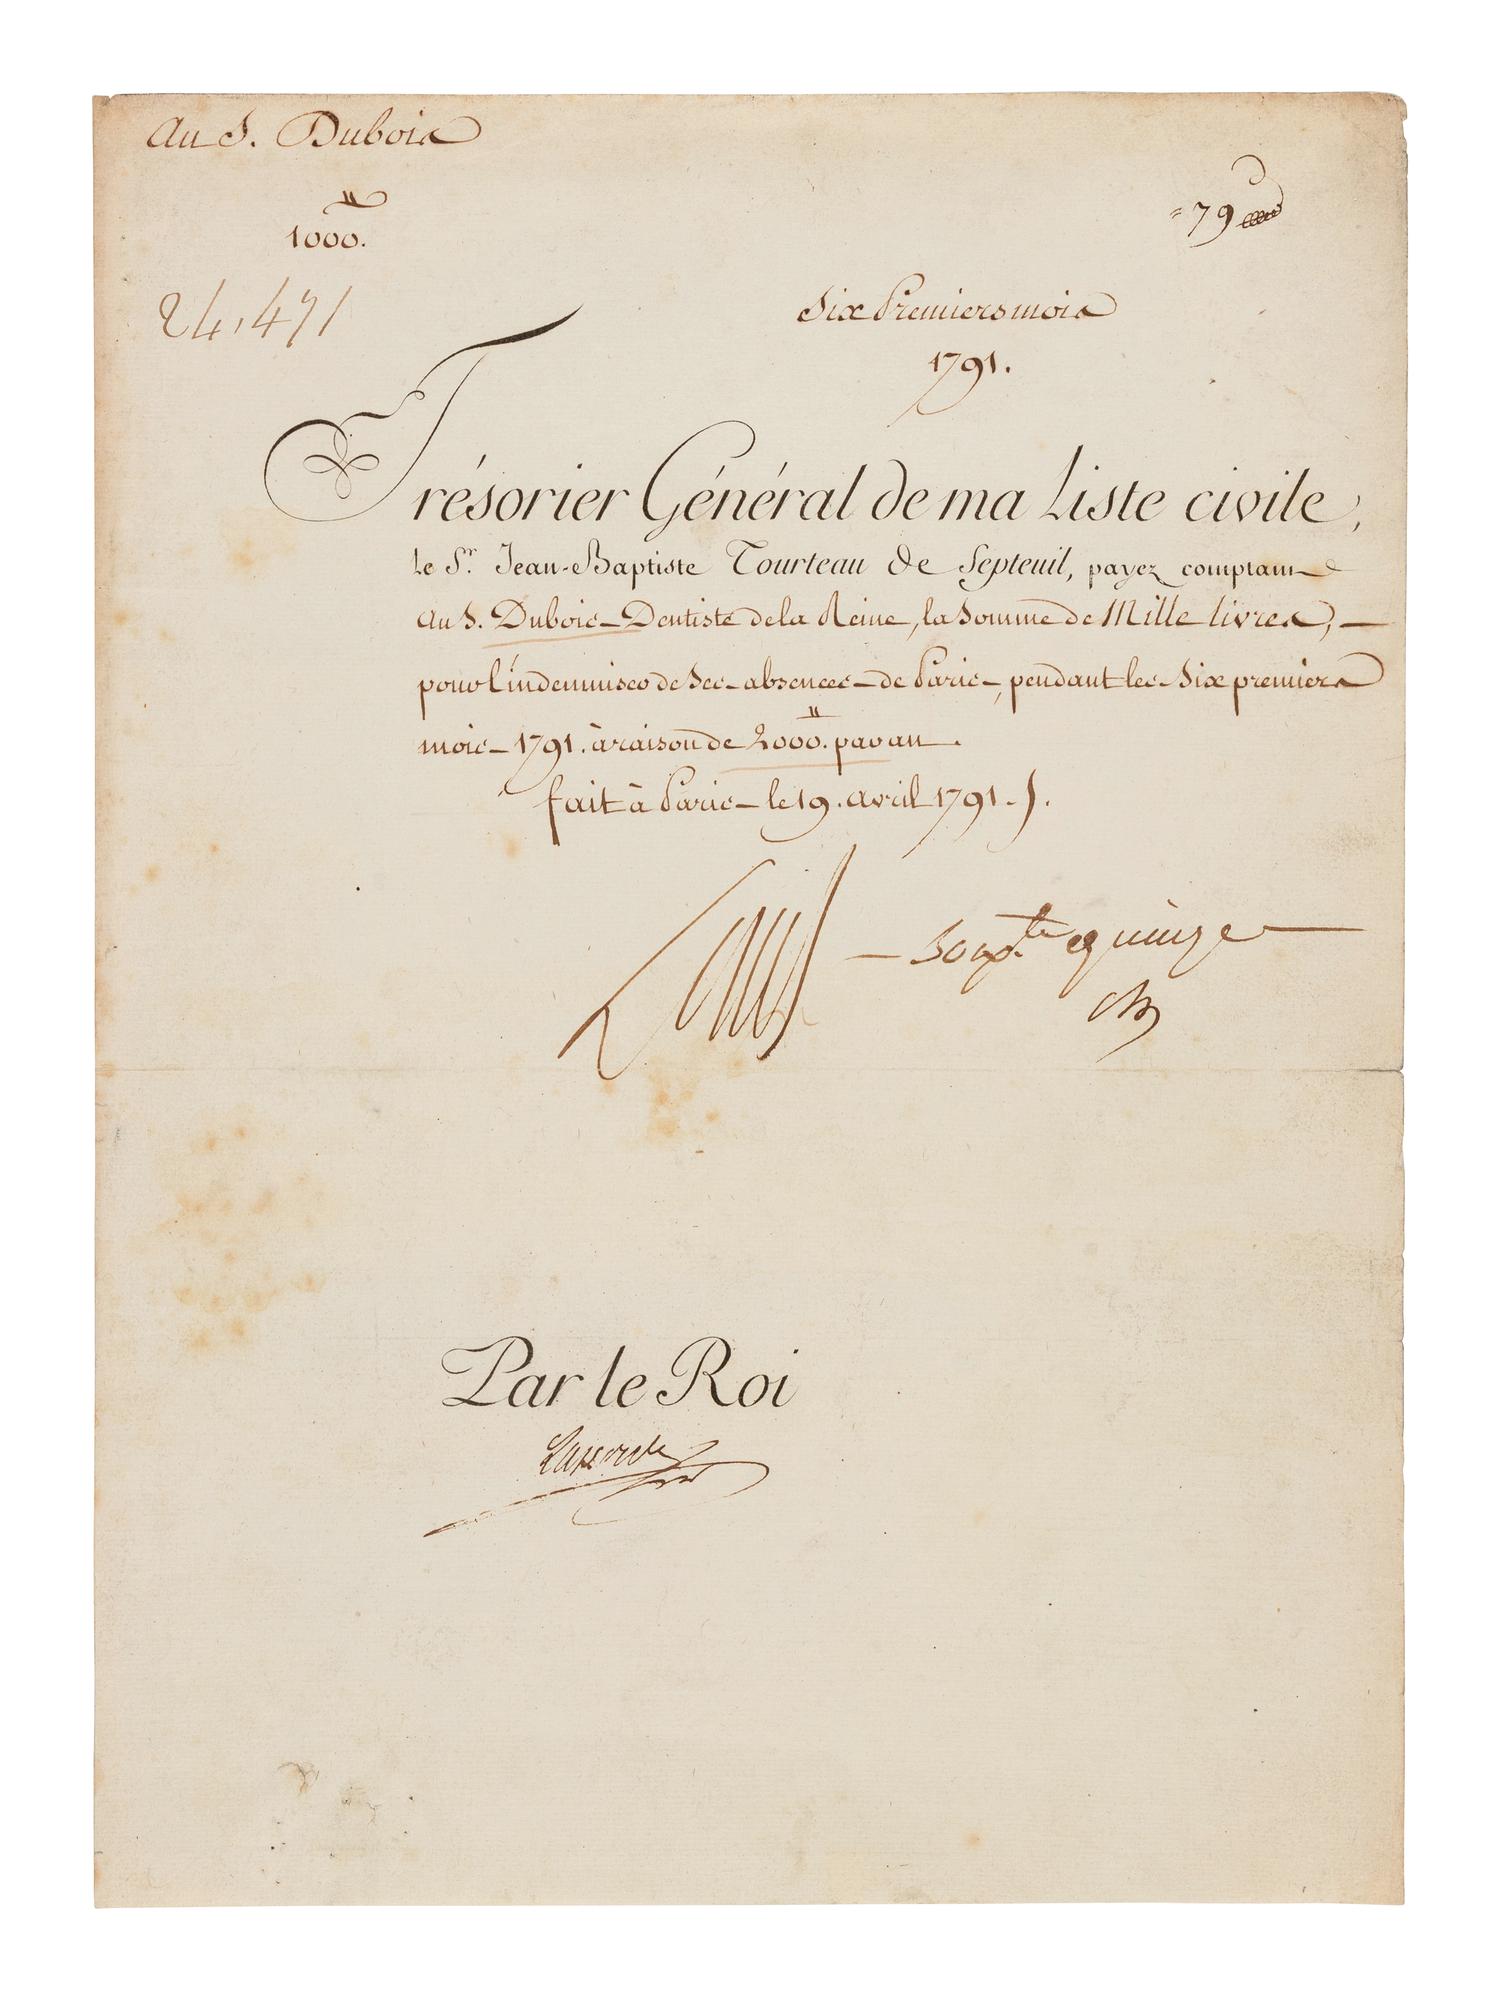 Au S. Dubois
1000.
=79
24,471
Six Premiers mois
1791.
Trésorier Général de ma Liste civile,
le Sr. Jean-Baptiste Tourteau de Septeuil, payez comptant
au S. Dubois Dentiste de la Reine, la Somme de Mille livres,
pour l'indemniser de Ses absences de Paris, pendant les Six premiers
mois 1791. à raison de 2000. par an.
fait à Paris le 19. avril 1791.
Louis
Par le Roi
Laporte